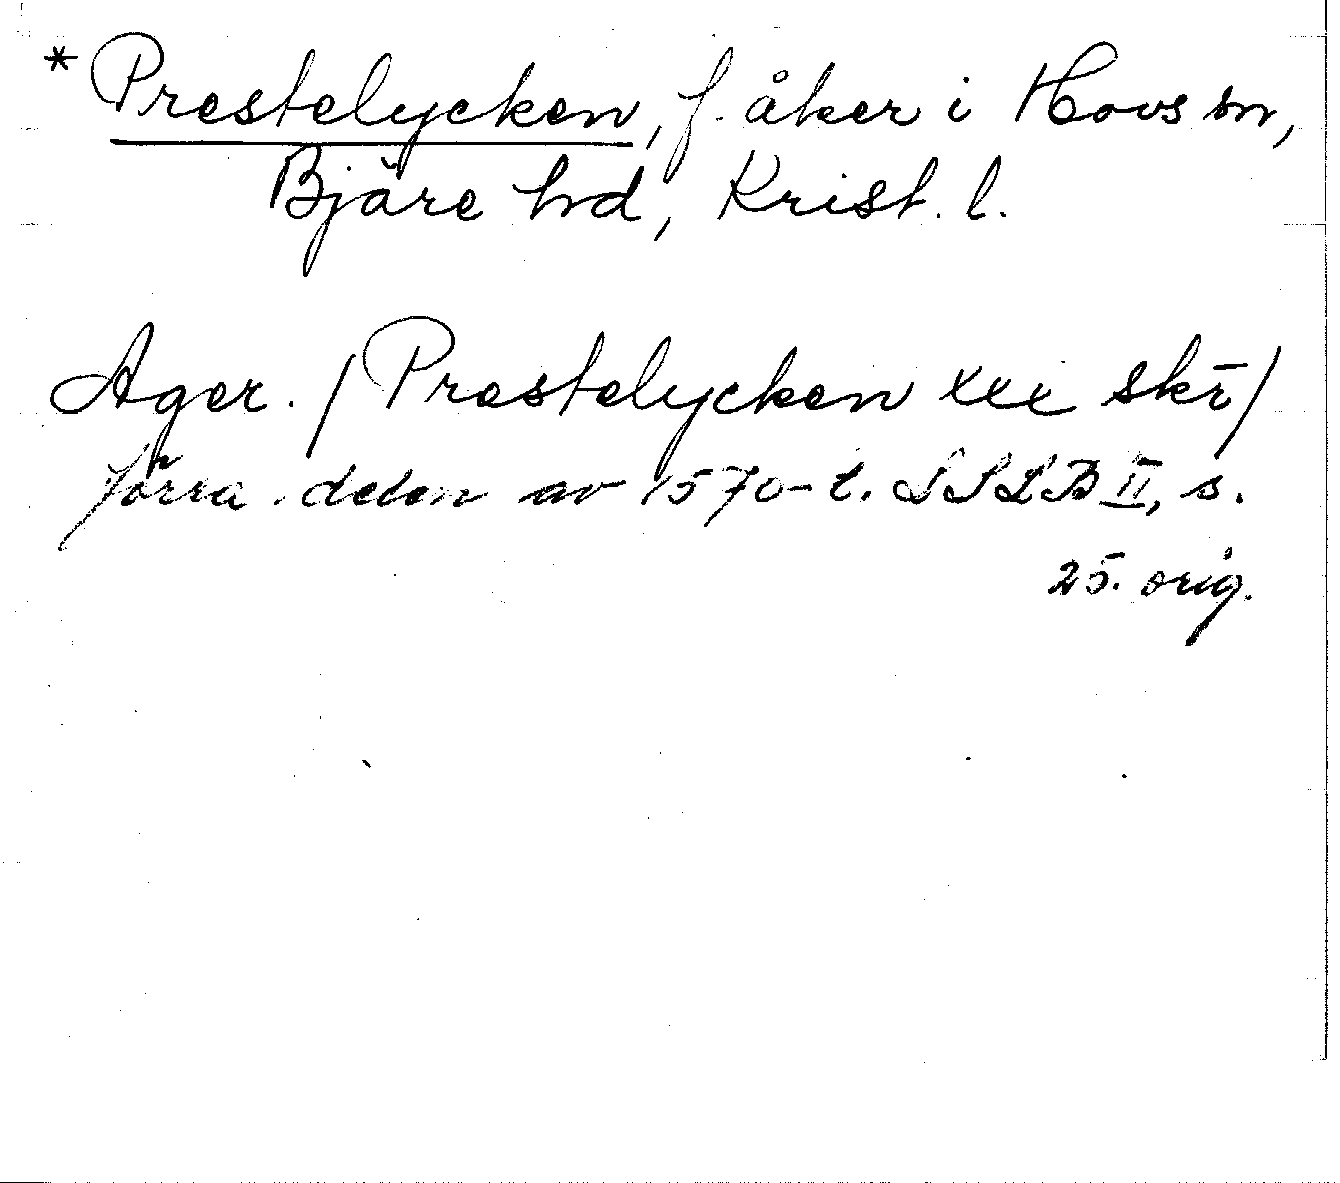 * Prestelycken, f. åker i Hovs sn,
Bjäre hd, Krist. l.
Ager. / Prestelycken xxi skr̄ /
förra delen av 1570-t. LSLB II, s.
25. orig.